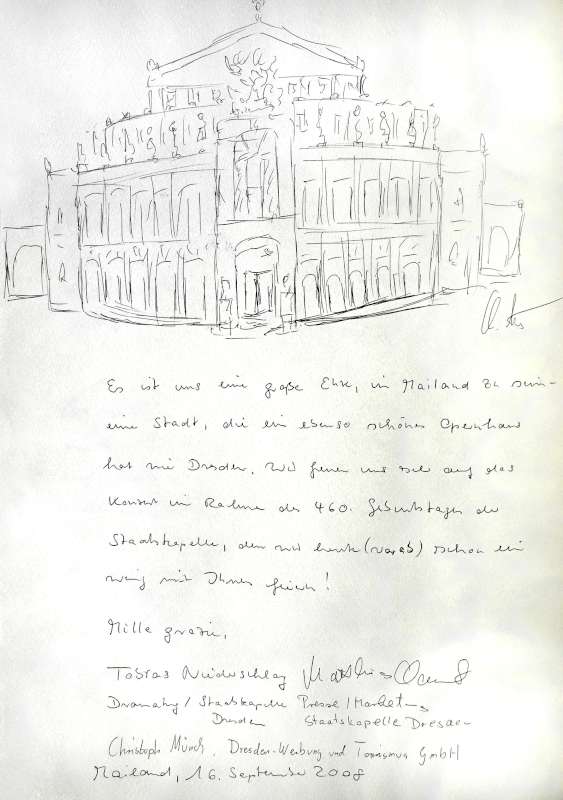 Es ist uns eine große Ehre, in Mailand zu sein -
eine Stadt, die ein ebenso schönes Opernhaus
hat wie Dresden. Wir freuen uns sehr auf das
Konzert im Rahmen des 460. Geburtstages der
Staatskapelle, den wir heute (vorab) schon ein
wenig mit Ihnen feiern!
Mille grazie,
Tobias Niederschlag Matthias
Dramaturg / Staatskapelle Dresden
Presse / Marketing Staatskapelle Dresden
Christoph Münch, Dresden-Werbung und Tourismus GmbH
Mailand, 16. September 2008